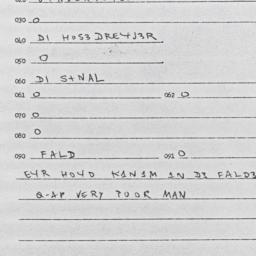 030 O
040 DI HOS3DREYJ3R
050 O
060 DI S+NAL
061 O 062 O
070 O
080 O
090 FALD 091 O
EYR HOYD K1N1M 1N D3 FALD3
Q-AP VERY POOR MAN